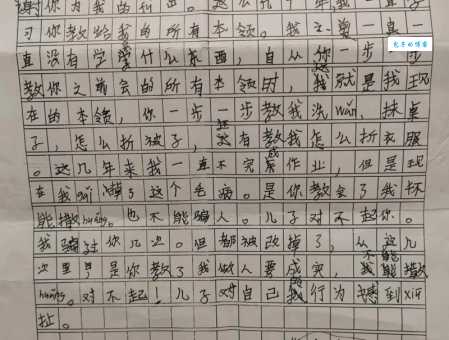 谢你为我的付出。这么几年,我一直学
习你教给我的所有本领。我之前一直一
直没有学爱什么东西,自从你一步一步
教你之前会的所有本领时,我就是我现
在的本领,你一步一步教我洗wǎn,抹桌
子,怎么折被子,还有教我怎么折衣服
。这几年来我一直不完成作业,但是现
在我gǎi掉了这个毛病。是你教会了我不
能撒huǎng。也不能骗人。儿子对不起你。
我骗过你几次。但都被改掉了,从这几
次里是你教了我做人要成实,不能撒
huǎng。对不起!儿子对自己行为感到xiū
耻。
包子的博客